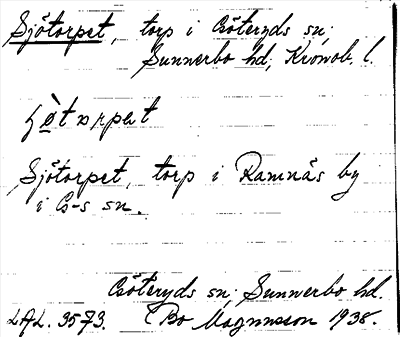 Sjötorpet, torp i Göteryds sn;
Sunnerbo hd, Kronob. l.
Sjötorpet, torp i Ramnäs by
i G-s sn.
Göteryds sn; Sunnerbo hd.
LAL. 3573. Bo Magnusson 1938.